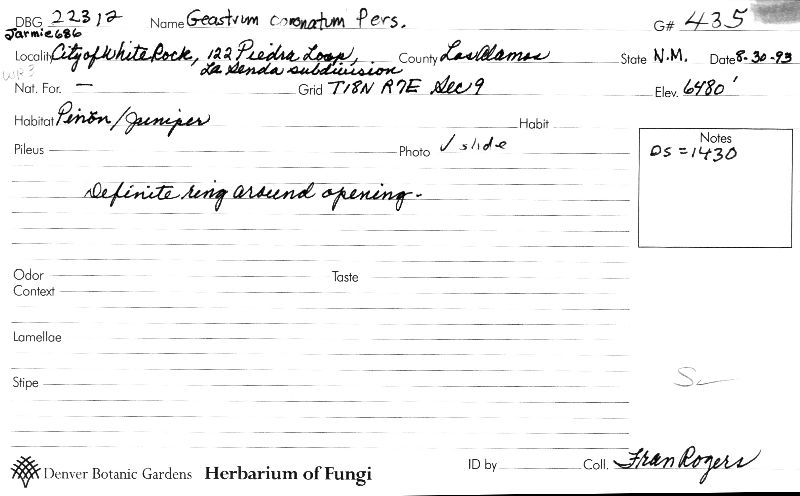 DBG 22312 Name Geastrum coronatum Pers. G# 435
Jarmie 686
Locality City of White Rock, 122 Piedra Loop, County Los Alamos State N.M. Date 8-30-93
WR3 La Senda subdivision
Nat. For. — Grid T18N R7E Sec 9 Elev. 6480'
Habitat Piñon/Juniper Habit
Pileus Photo √ slide
Notes
DS = 1430
Definite ring around opening.
Odor Taste
Context
Lamellae
Stipe
Denver Botanic Gardens Herbarium of Fungi ID by Coll. Fran Rogers